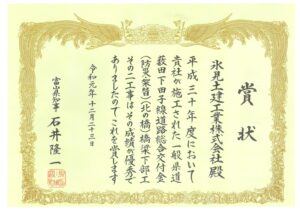 賞状
氷見土建工業株式会社殿
平成三十年度において
貴社が施工された一般県道
薮田下田子線道路総合交付金
(防災安全)(北の橋)橋梁下部工
その二工事はその成績が優秀で
ありましたのでこれを賞します
令和元年十二月二十三日
富山県知事 石井隆一